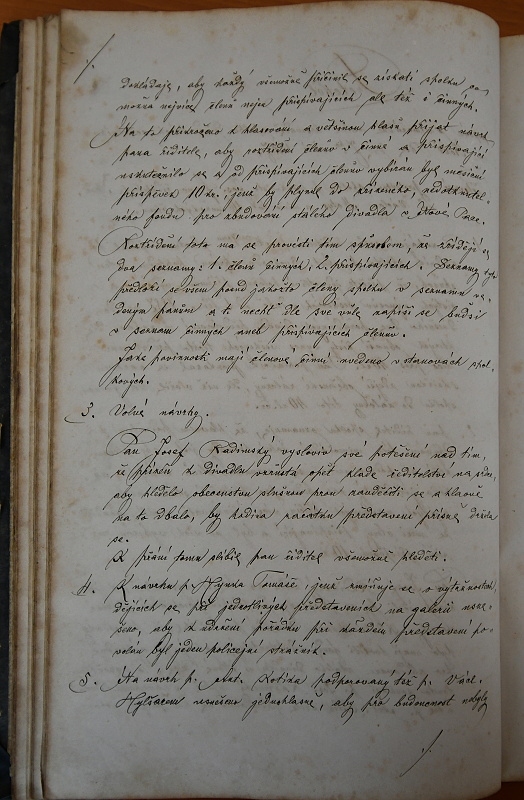 dokládaje, aby každý všemožně přičinil se získati spolku co
možná nejvíce členů nejen přispívajících ale též i činných.
Na to přikročeno k hlasování a většinou hlasů přijat návrh
pana ředitele, aby roztřídění členův v činné a přispívající
uskutečnilo se a od přispívajících členův vybírán byl měsíční
příspěvek 10 kr., jenž by plynul do zvláštního, nedotknutel-
ného fondu pro zbudování stálého divadla v Nové Pace.
Roztřídění toto má se provésti tím způsobem, že zřídějí se
dva seznamy: 1. členů činných, 2. přispívajících. Seznamy tyto
předloží se všem posud jakožto členy spolku v seznamu ve-
deným pánům a ti nechť dle své vůle napíší se buďsi
v seznam činných aneb přispívajících členův.
Jaké povinnosti mají členové činní uvedeno v stanovách spol-
kových.
3. Volné návrhy.
Pan Josef Kadinský vysloviv své potěšení nad tím,
že přízeň k divadlu vzrůstá opět klade ředitelství na srdce,
aby hledělo obecenstvu slušnou prou zavděčiti se a hlavně
na to dbalo, by hodina začátku představení přísně držela
se.
K přání tomu slíbil pan ředitel všemožně hleděti.
4. K návrhu p. Hynka Tomáše, jenž zmiňuje se o výtržnostech,
dějících se při jednotlivých představeních na galerii usne-
šeno, aby k udržení pořádku při každém představení po-
volán byl jeden policejní strážník.
5. Na návrh p. Kotíka podporovaný též p. Václ.
usnešeno jednohlasně, aby pro budoucnost nebyly